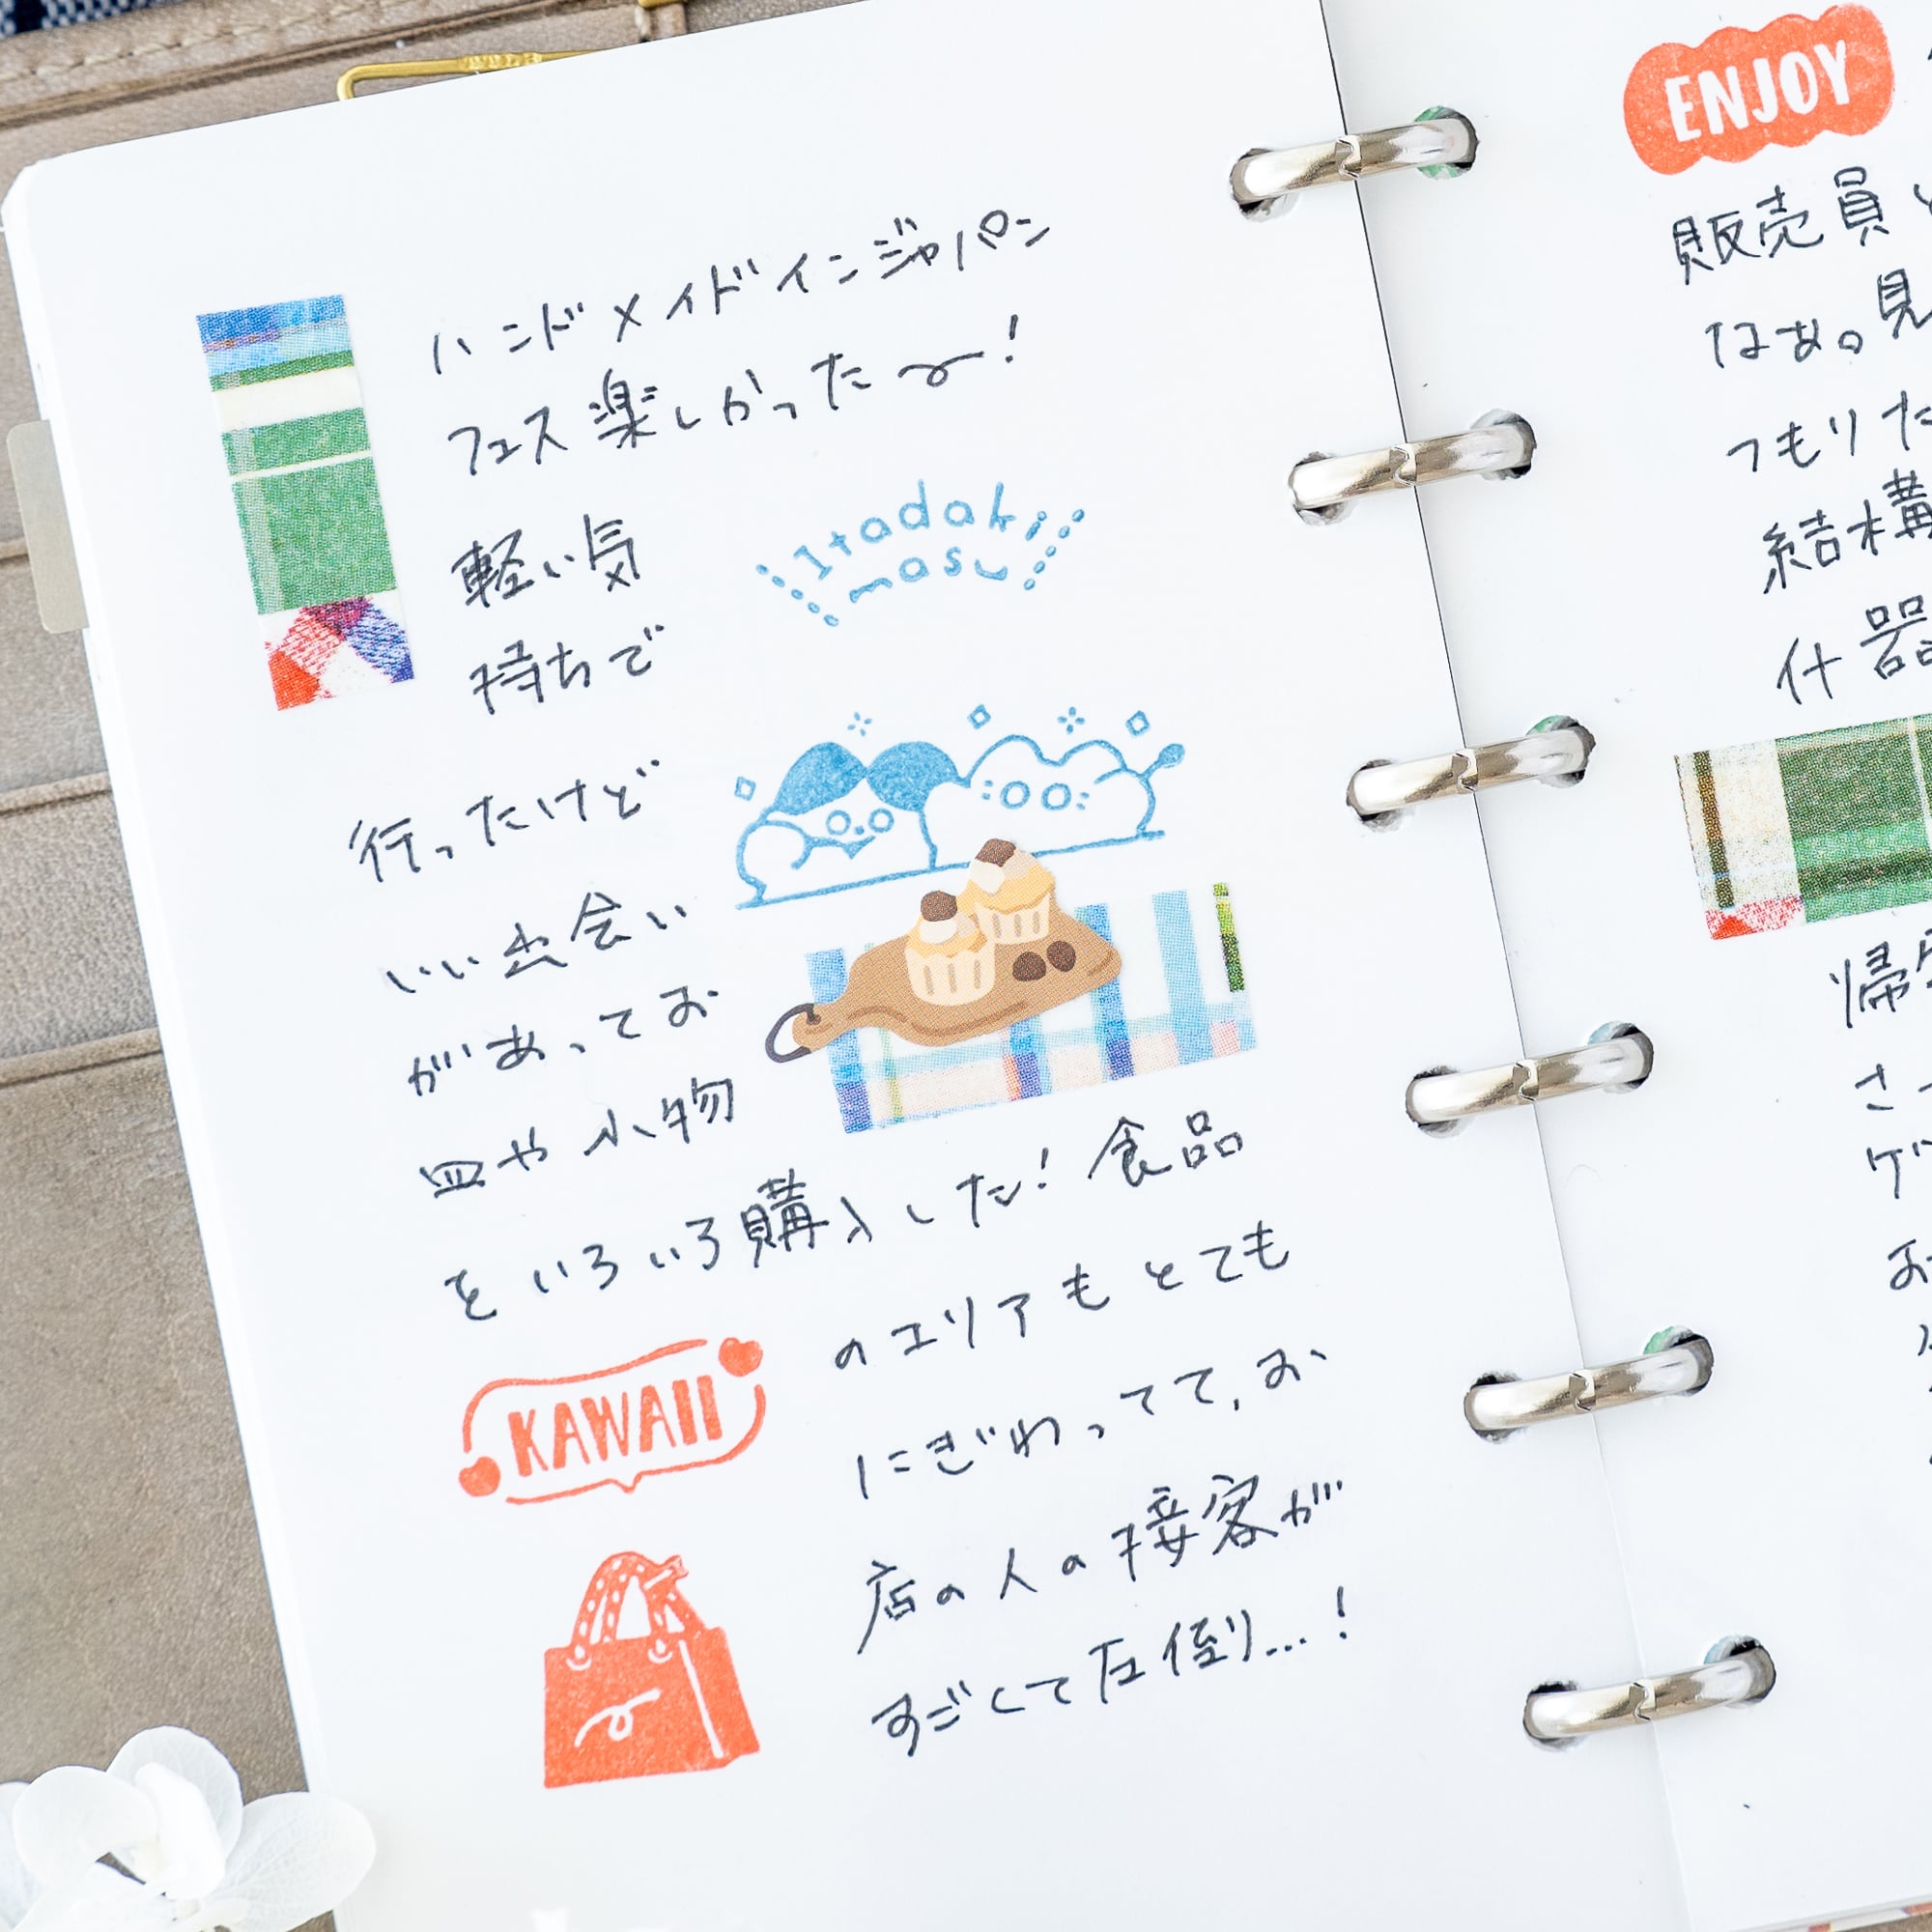 ハンドメイドインジャパン
フェス楽しかったー!
Itadaki
masu
軽い気
持ちで
行ったけど
いい出会い
があってお
皿や小物
をいろいろ購入した!食品
KAWAII
のエリアもとても
にぎわってて、お
店の人の接客が
すごくて圧倒り…!
ENJOY
販売員
なあ。見
つもりた
結構
什器
帰宅
さっ
ゲッ
お